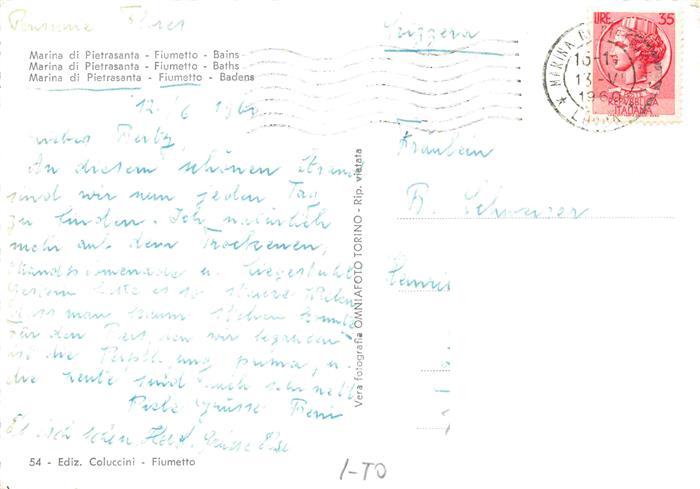 Pensione
Svizzera
LIRE 35
POSTE
REPVBBLICA
ITALIANA
MARINA
13-VI
1960
Marina di Pietrasanta - Fiumetto - Bains
Marina di Pietrasanta - Fiumetto - Baths
Marina di Pietrasanta - Fiumetto - Badens
12./6 1960
An diesem schönen Strand
sind wir nun jeden Tag
zu finden. Ich natürlich
mehr auf dem Trockenen,
Strandpromenade u. Liegestuhl.
Gestern hatte es so
dass man kaum stehen konnte
für den Rest, den wir
ist die prima, u.
die Leute sind auch sehr nett
Viele Grüsse
Es ist schön Grüsse
Fräulein
B. Schweizer
Vera fotografia OMNIAFOTO TORINO - Rip. vietata
54 - Ediz. Coluccini - Fiumetto
I-TO